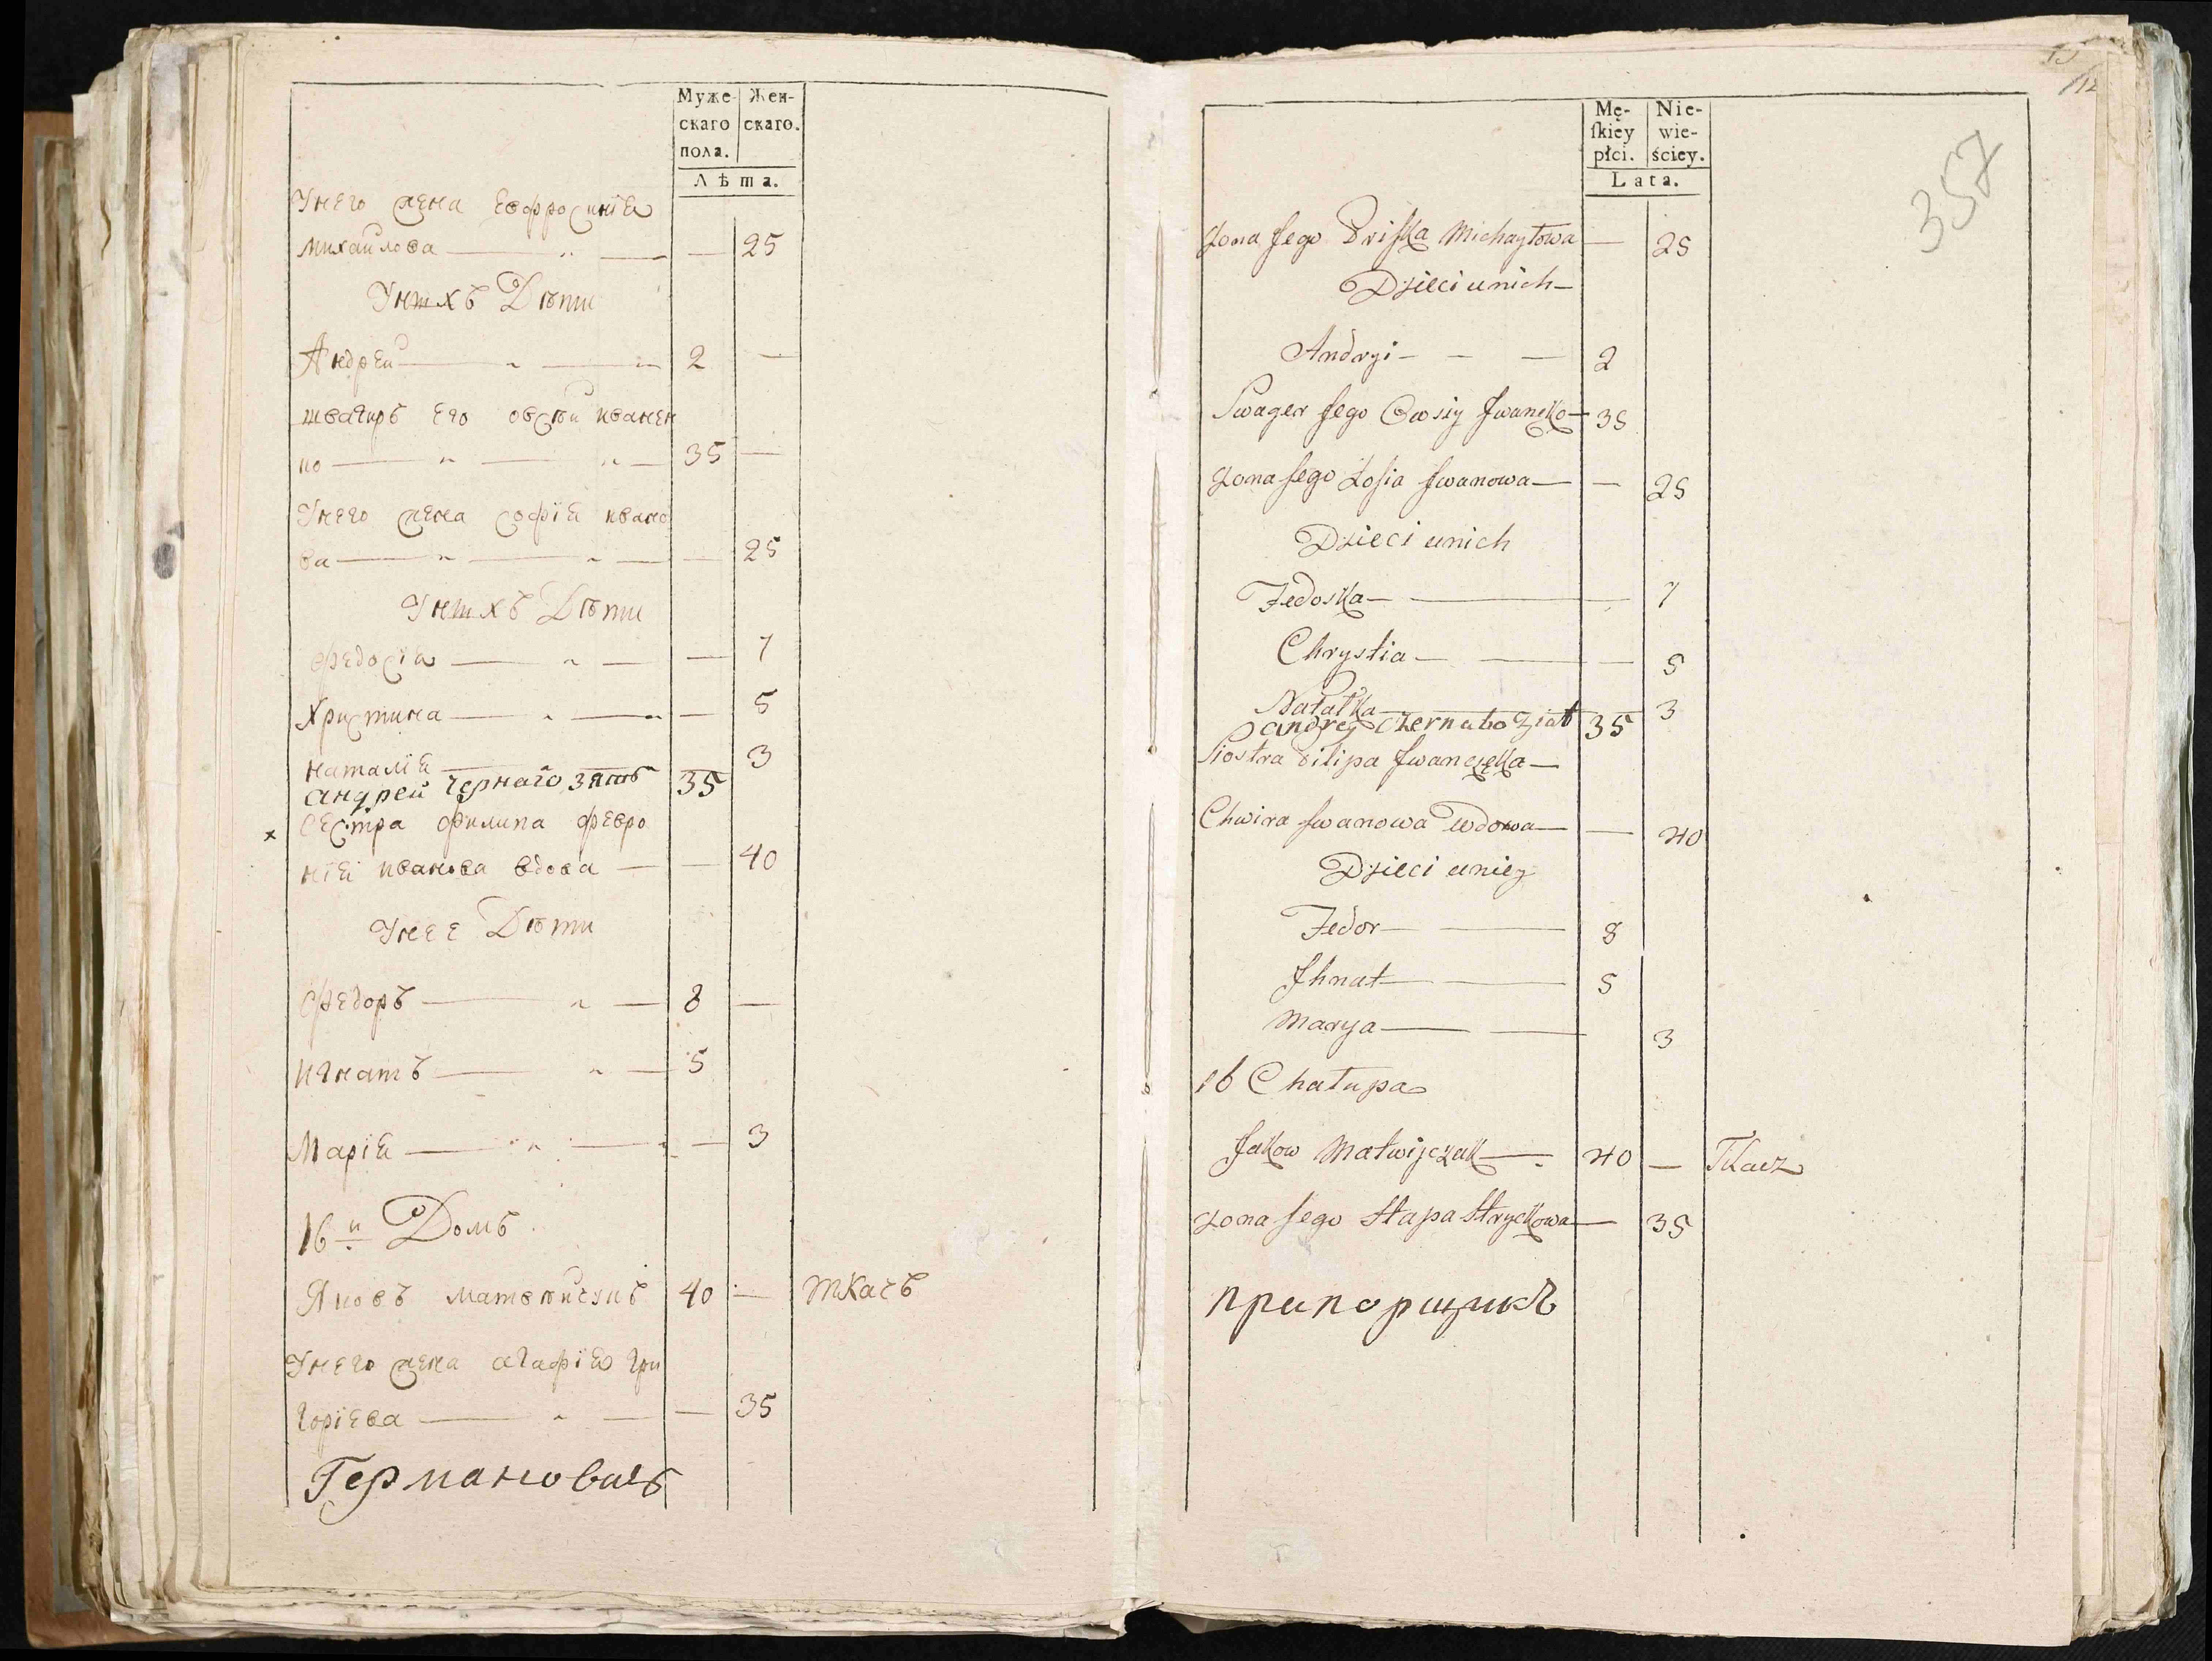 Муже-
скаго
пола.
Жен-
скаго.
Лѣта.
Унего жена Евфросинїя
Михайлова — — — 25
Унихъ Дѣти
Андрей — — 2 —
шваґиръ Его овсѣй иванен
ко — — — 35 —
Унего жена софїя ивано
ва — — — — 25
Унихъ Дѣти
федосїя — — — 7
Христина — — — 5
наталїя — 3
андрей Чернаго зять 35
× сестра филипа февро
нїя иванова вдова — — 40
Унее Дѣти
федоръ — — 8 —
игнатъ — — 5
Марїя — — — 3
16й Домъ
Яковъ матвѣйчукъ 40 — ткачъ
Унего жена агафїя гри
горїева — — — 35
Германовичъ
15
112
357
Mę-
ſkiey
płci.
Nie-
wie-
ściey.
Lata.
Zona Jego Priſka Michayłowa — 25
Dzieci u nich —
Andryi — — — 2
Swager Jego Owsiy Iwanęko — 35
Zona Jego Zoſia Iwanowa — — 25
Dzieci u nich
Fedoska — — — 7
Chrystia — — — 5
Natałka — 3
andrey Czernubo Ziat 35
Siostra Filipa Iwanczęka —
Chwira Iwanowa Wdowa — — 40
Dzieci u niey
Fedor — — 8
Ihnat — — 5
Marya — — 3
16 Chałupa
Jakow Matwijczuk — 40 — Tkacz
Zona Jego Stapa Hryckowa — 35
прапорщикъ